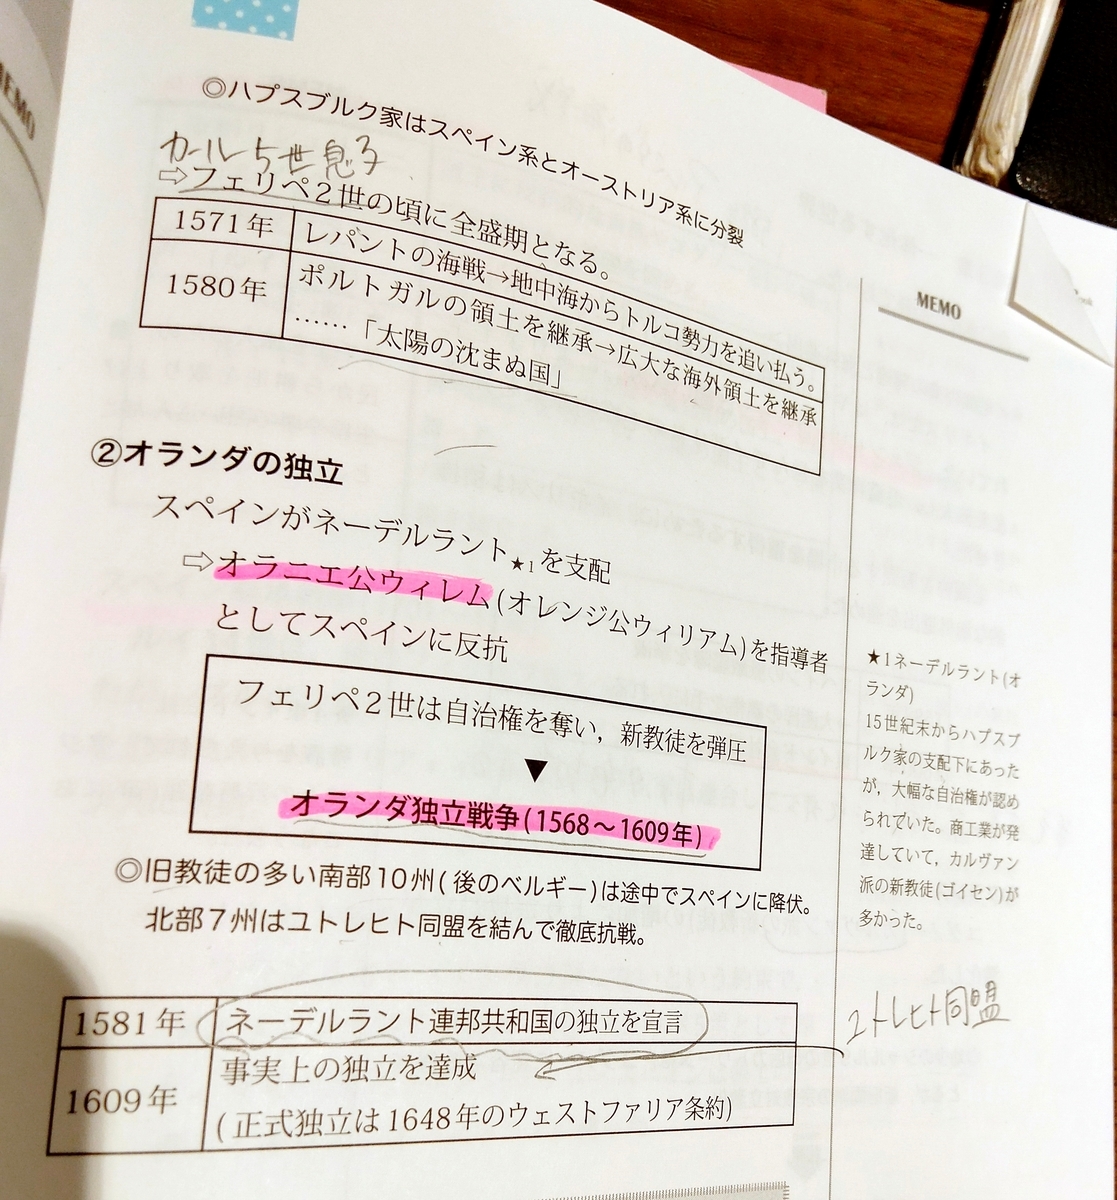 MEMO
◎ハプスブルク家はスペイン系とオーストリア系に分裂
カール5世息子
⇨フェリペ2世の頃に全盛期となる。
1571年 レパントの海戦→地中海からトルコ勢力を追い払う。
1580年 ポルトガルの領土を継承→広大な海外領土を継承
……「太陽の沈まぬ国」
②オランダの独立
スペインがネーデルラント★1を支配
⇨オラニエ公ウィレム(オレンジ公ウィリアム)を指導者
としてスペインに反抗
フェリペ2世は自治権を奪い，新教徒を弾圧
▼
オランダ独立戦争(1568～1609年)
◎旧教徒の多い南部10州(後のベルギー)は途中でスペインに降伏。
北部7州はユトレヒト同盟を結んで徹底抗戦。
1581年 ネーデルラント連邦共和国の独立を宣言
1609年 事実上の独立を達成
(正式独立は1648年のウェストファリア条約)
MEMO
★1ネーデルラント(オ
ランダ)
15世紀末からハプスブ
ルク家の支配下にあった
が，大幅な自治権が認め
られていた。商工業が発
達していて，カルヴァン
派の新教徒(ゴイセン)が
多かった。
ユトレヒト同盟